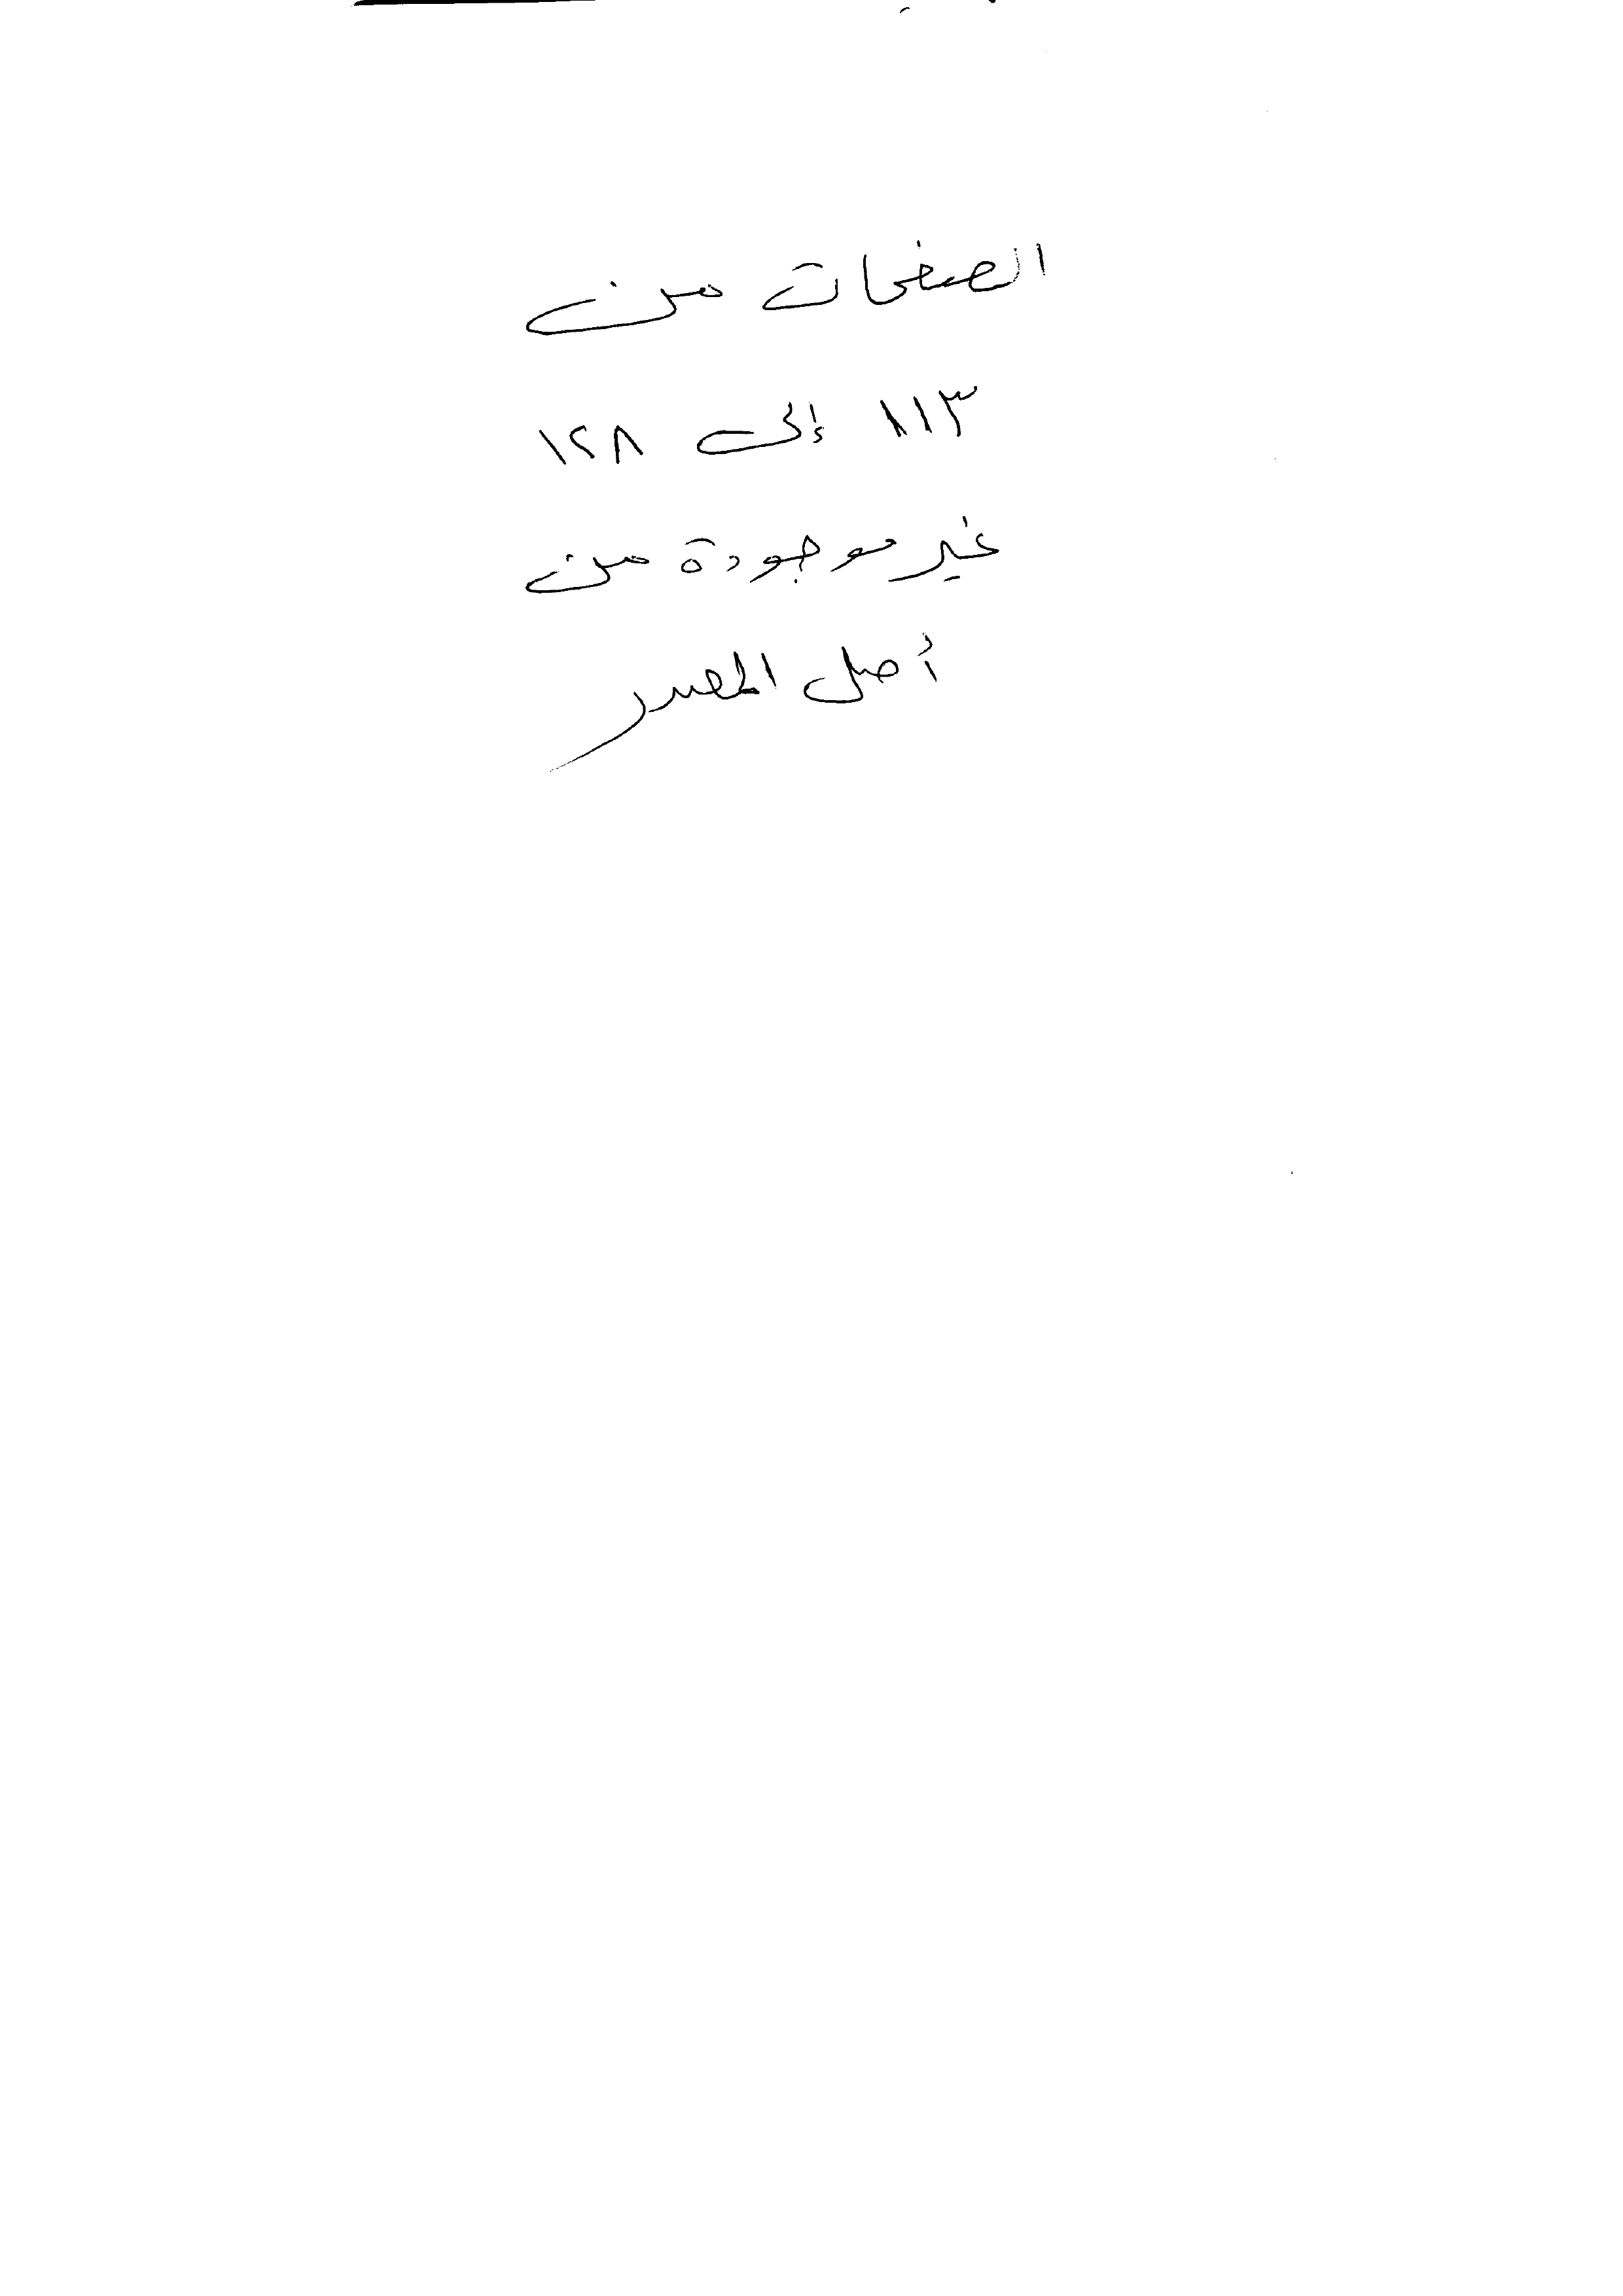 الصفحات من
١١٣ إلى ١٢٨
غير موجودة من
أصل المصدر